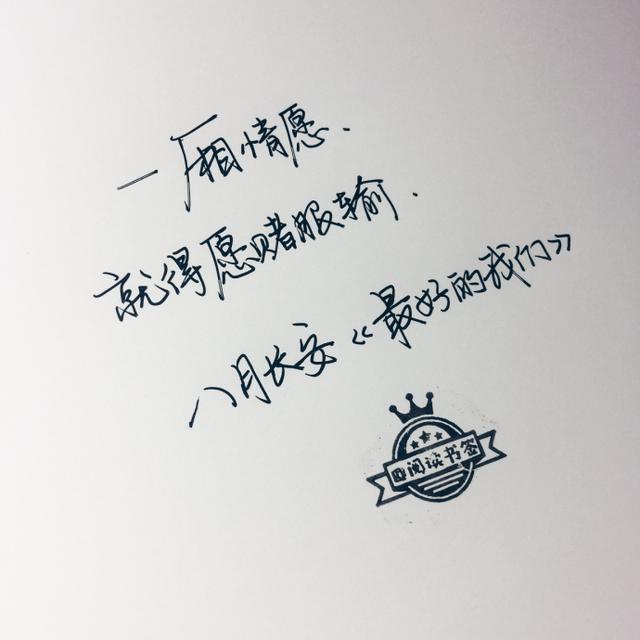 一厢情愿.
就得愿赌服输.
八月长安《最好的我们》
@阅读书签